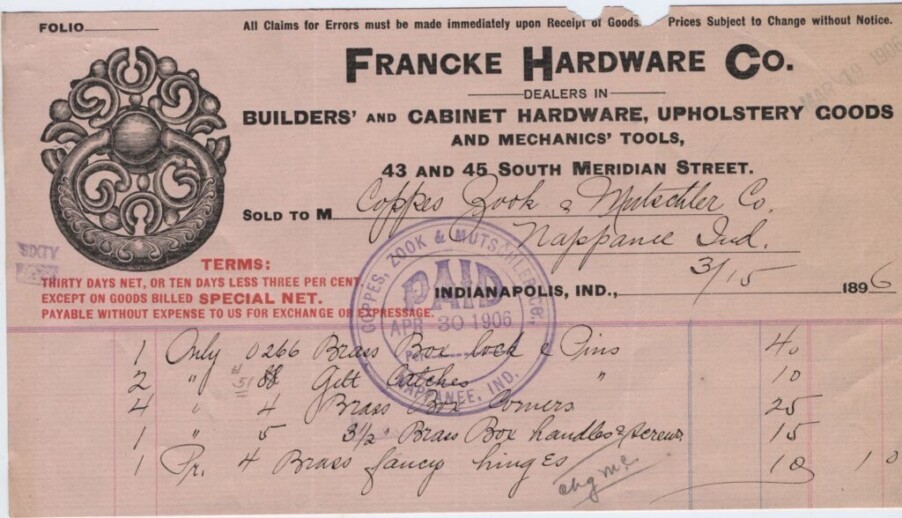 FOLIO
All Claims for Errors must be made immediately upon Receipt of Goods. Prices Subject to Change without Notice.
FRANCKE HARDWARE CO.
MAR 19 1906
DEALERS IN
BUILDERS' AND CABINET HARDWARE, UPHOLSTERY GOODS
AND MECHANICS' TOOLS,
43 AND 45 SOUTH MERIDIAN STREET.
SOLD TO M Coppes Zook & Mutschler Co.
Nappanee Ind.
SIXTY
TERMS:
THIRTY DAYS NET, OR TEN DAYS LESS THREE PER CENT.
EXCEPT ON GOODS BILLED SPECIAL NET.
PAYABLE WITHOUT EXPENSE TO US FOR EXCHANGE OR EXPRESSAGE.
INDIANAPOLIS, IND., 3/15 1896
COPPES, ZOOK & MUTSCHLER CO.,
PAID
APR 30 1906
Per
NAPPANEE, IND.
1 Only 0266 Brass Box lock & Pins 40
2 " Gilt Catches " 10
4 " 4 Brass Box Corners 25
1 " 5 3½" Brass Box handles & screws 15
1 Pr. 4 Brass fancy hinges 10 1 0
chg m.c.